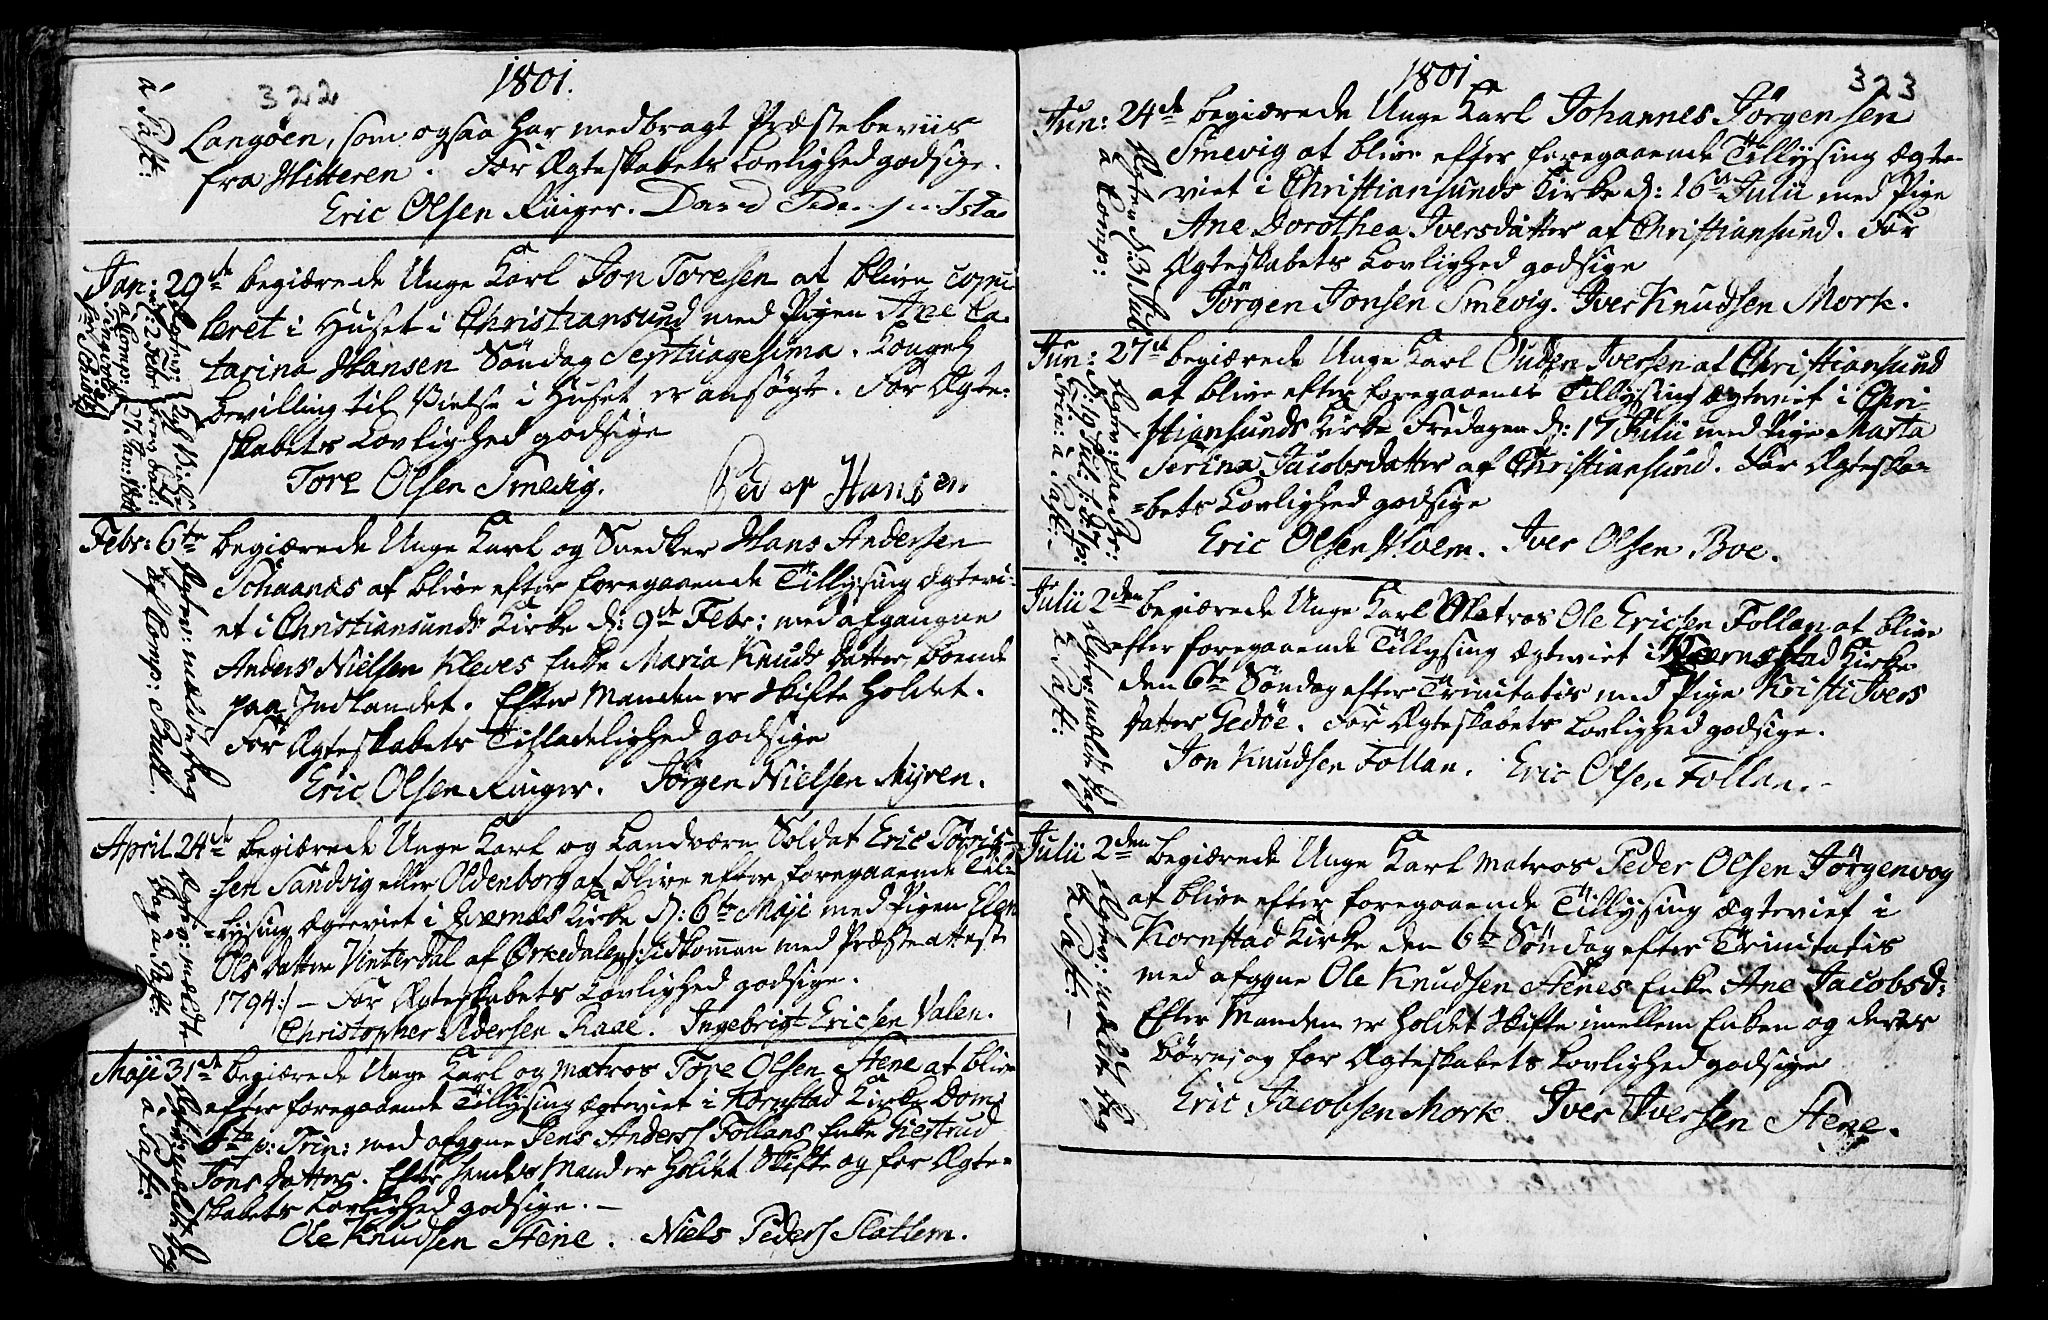 322
1801.
Langøen, som ogsaa har medbragt Præstebeviis
fra Hitteren. For Ægteskabets Lovlighed godsige.
Eric Olsen Ringer. David Pedersen
à Past:
Jan: 29de begiærede Unge Karl Jon Toresen at blive copu
leret i Huset i Christiansund med Pigen Ane Ca-
tarina Hansen Søndag Septuagesima. Kongel:
bevilling til Vielse i Huset er ansøgt. For Ægte-
skabets Lovlighed godsige
Tore Olsen Smevig. Peder Hansen
Febr: 6te begiærede Unge Karl og Snedker Hans Andersen
Schaanes at blive efter foregaaende Tillysing Ægtevi-
et i Christiansunds Kirke d: 9de Febr: med afgangne
Anders Nielsen Kleves Enke Maria Knuds datter, boende
paa Indlandet. Efter Manden er Skifte holdet.
For Ægteskabets Tilladelighed godsige
Eric Olsen Ringer. Jørgen Nielsen Myren.
Ægtev: nældte dag
af Comp:
April 24de begiærede Unge Karl og Landværn Soldat Eric
sen Sandvig eller Oldenborg at blive efter foregaaende Til-
lysing Ægteviet i Qvernes Kirke d: 6te Maji med Pigen Elen
Ols datter Vinterdal af Ørkedalen /: idkomman med Præsteattest
1794 :/ – For Ægteskabets Lovlighed godsige.
Christopher Pedersen Raae. Ingebrigt Ericsen Valen.
Ægtev: nældte
dag a Past:
Maji 31de begiærede Unge Karl og Matros Tore Olsen Stene at blive
efter foregaaende Tillysing Ægteviet i Kornstad Kirke Dom:
p: Trin: med afggne Jens Anders: Follans Enke Giertrud
Jons datter. Efter hendes Mand er holdet Skifte og for Ægte-
skabets Lovlighed godsige. –
Ole Knudsen Stene. Niels Peders: Slatlem.
Ægtev: nældte dag
a Past:
1801
323
Jun: 24de begiærede Unge Karl Johannes Jørgensen
Smevig at blive efter foregaaende Tillysing Ægte-
viet i Christiansunds Kirke d: 16de Julii med Pige
Ane Dorothea Iversdatter af Christiansund. For
Ægteskabets Lovlighed godsige
Jørgen Jonsen Smevig. Iver Knudsen Mork.
Ægtev: d: 31 Jul:
a Comp:
Jun: 27de begiærede Unge Karl Ouden Iversen af Christiansund
at blive efter foregaaende Tillysing Ægteviet i Chri-
stiansunds Kirke Fredagen d: 17 Julii med Pige Marta
Serina Jacobsdatter af Christiansund. For Ægteska-
bets Lovlighed godsige
Eric Olsen Hoem. Iver Olsen Boe.
Julii 2den begiærede Unge Karl Matros Ole Ericsen Follan at blive
efter foregaaende Tillysing Ægteviet i Kirke
den 6te Søndag efter Trinitatis med Pige Kristi Ivers
datter Gedøe. For Ægteskabets Lovlighed godsige.
Jon Knudsen Follan. Eric Olsen Follan.
Ægtev: nældte dag
a Past:
Julii 2den begiærede Unge Karl Matros Peder Olsen Jørgenvog
at blive efter foregaaende Tillysing Ægteviet i
Kornstad Kirke den 6te Søndag efter Trinitatis
med afggne Ole Knudsen Stenes Enke Ane Jacobsd:
Efter Manden er holdet Skifte imellem Enken og deres
Børn, og for Ægteskabets Lovlighed godsige
Eric Jacobsen Mork. Iver Iversen Stene.
Ægtev: nældte dag
a Past: –